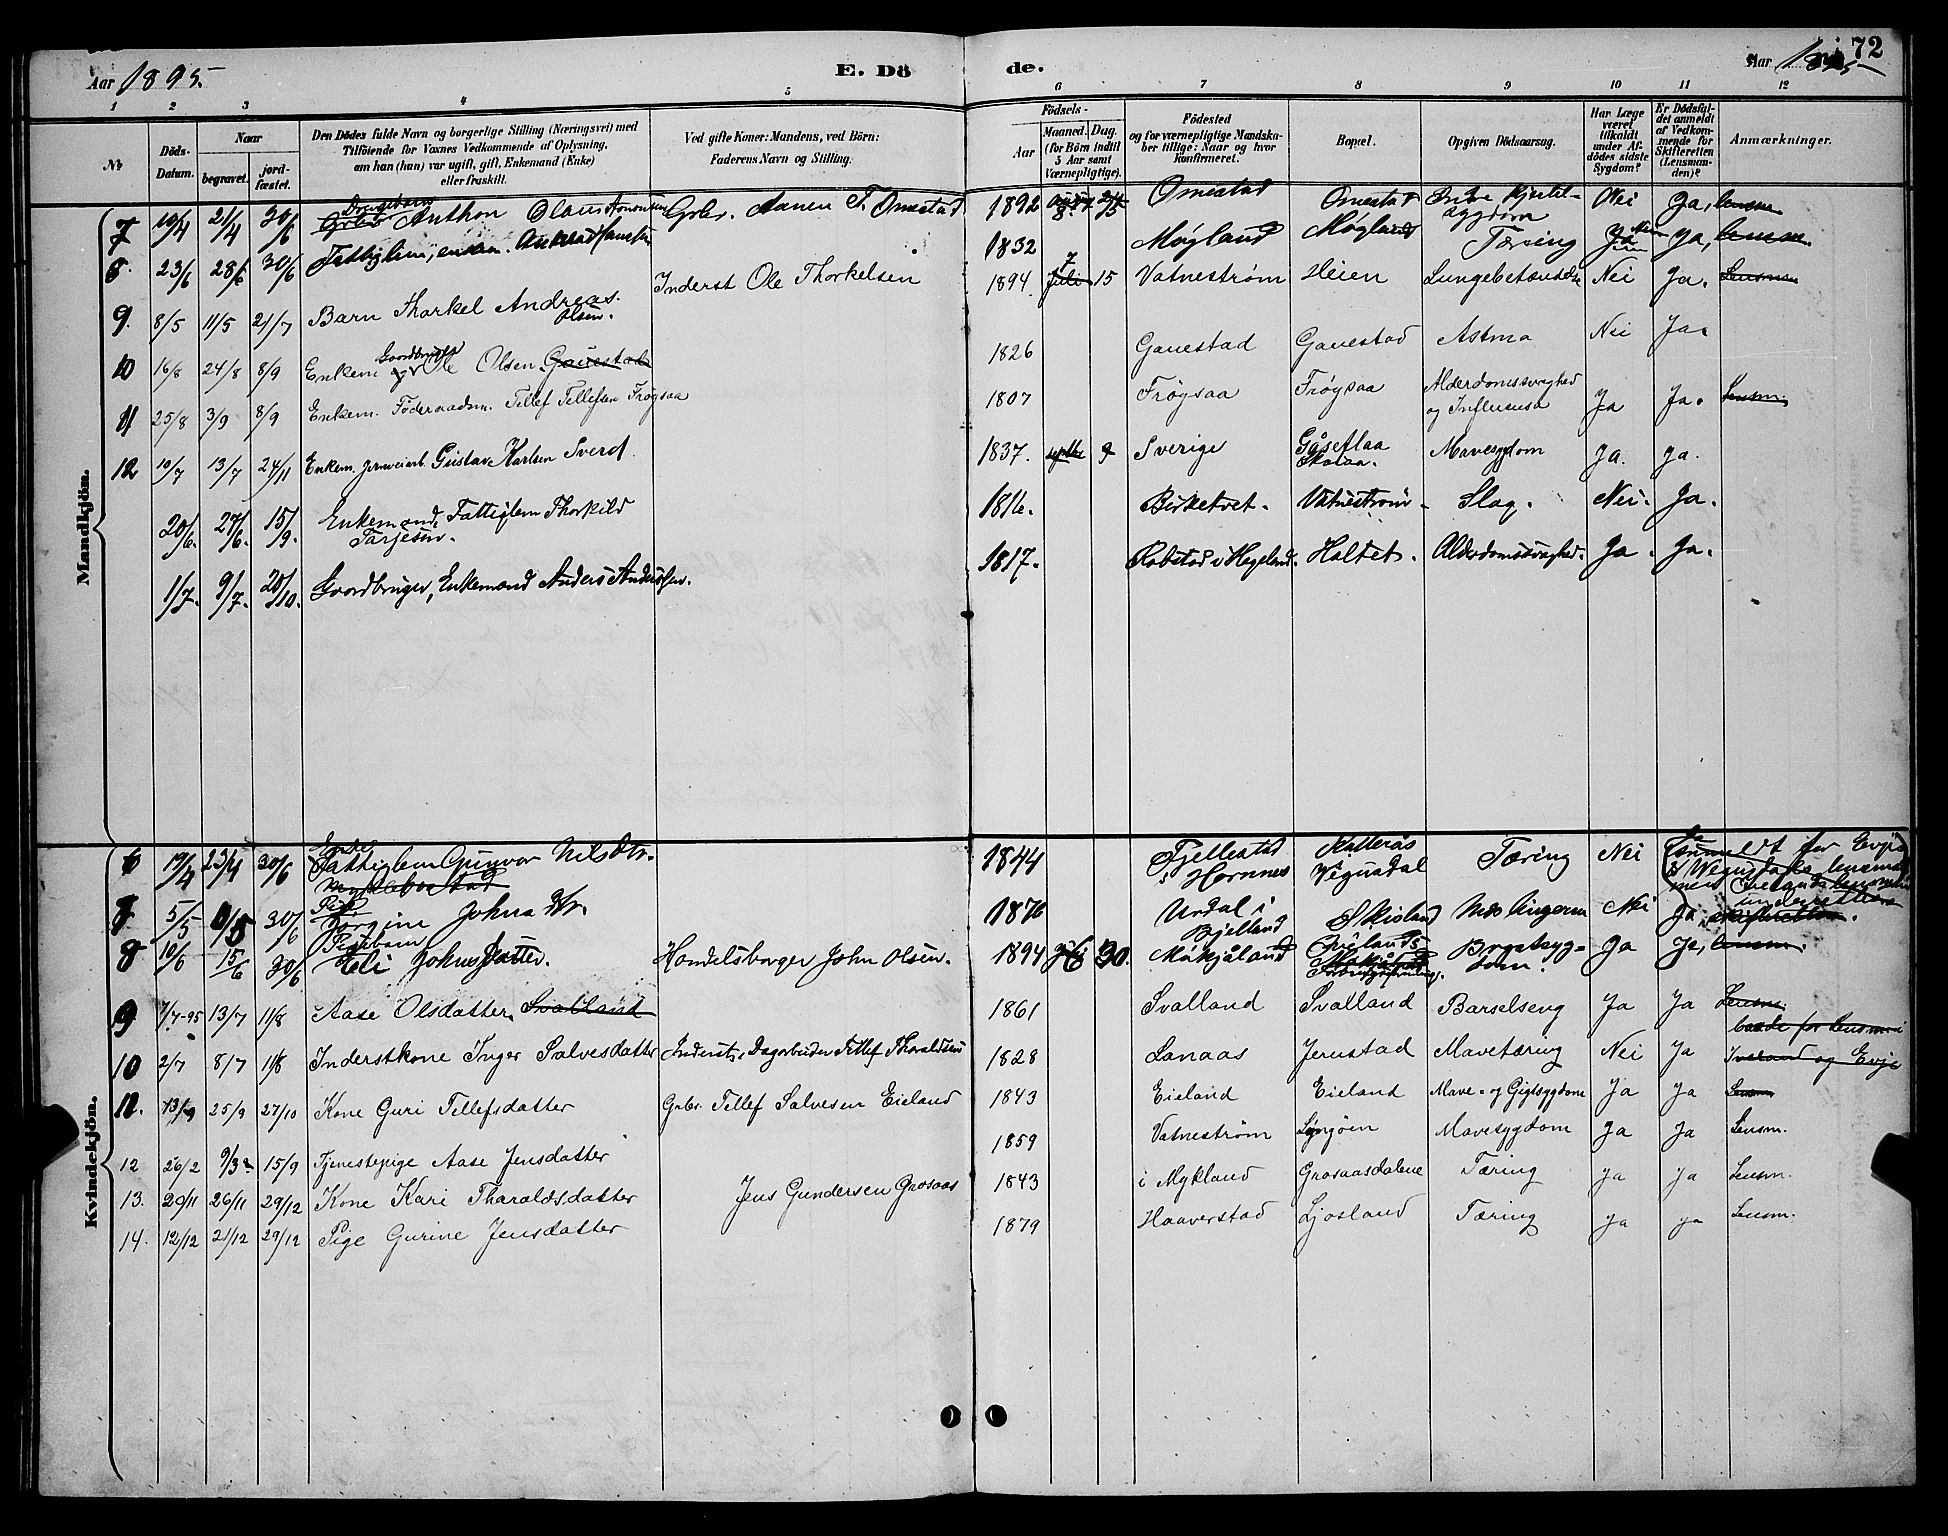 Aar 1895.
E. Dö
de.
Aar 1895
72
1 2 3 4 5 6 7 8 9 10 11 12
№
Döds-Datum.
Naar
begravet.
jord-fæstet.
Den Dödes fulde Navn og borgerlige Stilling (Næringsvei) med
Tilföiende for Voxnes Vedkommende af Oplysning,
om han (hun) var ugift, gift, Enkemand (Enke)
eller fraskilt.
Ved gifte Koner: Mandens, ved Börn:
Faderens Navn og Stilling.
Födsels-
Aar
Maaned. Dag.
(for Börn indtil
5 Aar samt
Værnepligtige).
Födested
og for værnepligtige Mandska-
ber tillige: Naar og hvor
konfirmeret.
Bopæl.
Opgiven Dödsaarsag.
Har Læge
været
tilkaldt
under Af-
dödes sidste
Sygdom?
Er Dödsfal-
det anmeldt
af Vedkom-
mende for
Skifteretten
(Lensman-
den)?
Anmærkninger.
Mandkjön.
7 10/4 21/4 30/6 Drengebarn Anthon Olaus Aanensen Grbr. Aanen T. Omestad 1892 Omestad Omestad Nei Ja, lensm.
8. 23/6 28/6 30/6 1832 Møgland Møgland Tæring Ja Ja, lensm.
9. 8/5 11/5 21/7 Barn Thorkel Andreas Olsen. Inderst Ole Thorkelsen 1894 7 Juli 15 Vatneström Heien Lungebetændelse Nei Ja. Lensm
10 16/8 24/8 8/9 Enkem Gaardbruger Ole Olsen Gauestad 1826 Gauestad Gauestad Astma Nei Ja.
11 25/8 3/9 8/9 Enkem. Föderaadsm. Tellef Tellefsen Frøgsaa 1807 Frøgsaa Frøgsaa Alderdomssvaghed og Influensa Ja Ja. Lensm.
12 10/7 13/7 24/11 Enkem. Jernveiarb. Gustav Karlsen Sverd. 1837. septbr 9 Sverige Gåseflaa Mavesygdom Ja. Ja.
20/6. 27/6. 15/9. Enkemand, Fattiglem Thorkild Tarjesen. 1816. Birketvet. Vatneström. Slag. Nei. Ja.
1/7. 9/7. 20/10. Gaardbruger, Enkemand Anders Andersen. 1817. Robstad i Hegeland. Holtet. Alderdomssvaghed. Ja. Ja.
Kvindekjön.
6 19/4 23/4 30/6 Enke Fattiglem Gunvor Nilsdtr. 1844 Fjellestad i Hornnes Vegusdal Tæring Nei
7. 5/5 30/6 Pige Johnsdtr. 1876 Urdal i Bjelland Skisland Nei Ja, skifteretten.
8 10/6 15/6 30/6 Pigebarn Johnsdatter. Handelsborger John Olsen. 1894 Juli 30. Møkjåland Brystsygdom. Ja Ja, lensm.
9 7/7-95 13/7 11/8 Aase Olsdatter. Svalland 1861 Svalland Svalland Barselseng Ja Ja Lensm.
10 2/7 8/7 11/8 Inderstkone Inger Salvesdatter Inderst, Dagarbeider Tellef Tharaldsen 1828 Lanaas Jerustad Mavetæring Nei Ja baade for lensm i Iveland og Evje
11. 13/9 25/9 27/10 Kone Guri Tellefsdatter Grbr. Tellef Salvesen Eieland 1843 Eieland Eieland Mave- og Gigtsygdom Ja Ja Lensm
12 26/2 9/3 15/9 Tjenestepige Aase Jensdatter 1859 Vatneström Mavesygdom Ja Ja Lensm.
13. 20/11 26/11 29/12 Kone Kari Tharaldsdatter Jens Gundersen Grosaas 1843 i Mykland Grosaasdalene Tæring Ja Ja Lensm.
14. 12/12 21/12 29/12 Pige Gurine Jensdatter 1879 Haaverstad Ljosland Tæring Ja Ja Lensm.